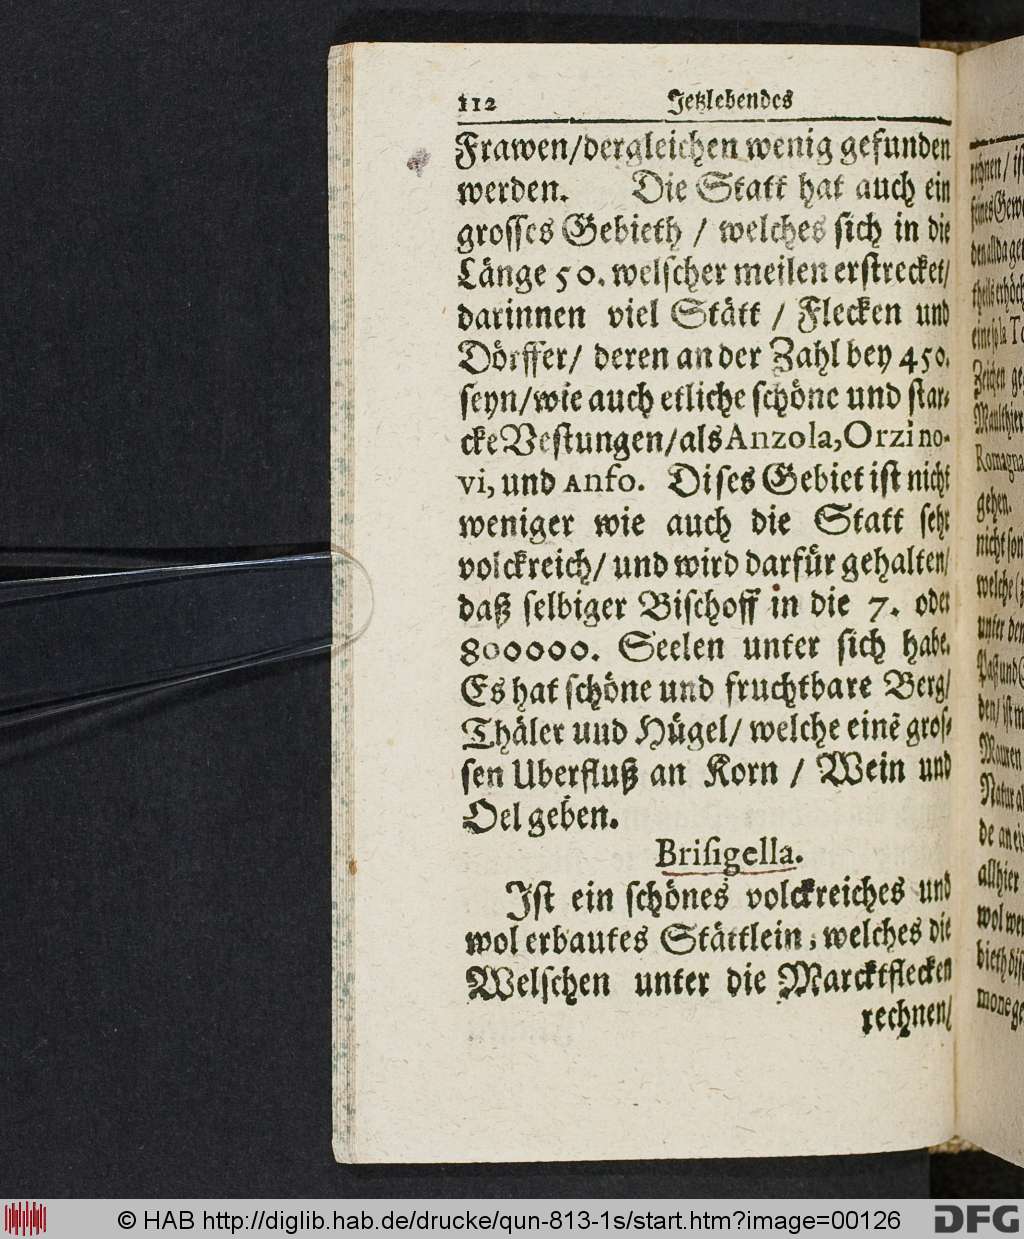 112 Jetzlebendes
Frawen/dergleichen wenig gefunden
werden. Die Statt hat auch ein
grosses Gebieth / welches sich in die
Länge 50. welscher meilen erstrecket/
darinnen viel Stätt / Flecken und
Dörffer/ deren an der Zahl bey 450.
seyn/wie auch etliche schöne und star-
cke Vestungen/als Anzola, Orzino-
vi, und Anfo. Dises Gebiet ist nicht
weniger wie auch die Statt sehr
volckreich/ und wird darfür gehalten/
daß selbiger Bischoff in die 7. oder
800000. Seelen unter sich habe.
Es hat schöne und fruchtbare Berg/
Thäler und Hügel/ welche einẽ gros-
sen Uberfluß an Korn / Wein und
Oel geben.
Brisigella.
Ist ein schönes volckreiches und
wol erbautes Stättlein, welches die
Welschen unter die Marcktflecken
rechnen/
rechnen/ ist
seines Gew
den allda ge
theils erhöch
eine sola To
Zeichen ge
Maulthier
Romagna
gehen.
nicht son
welche (
unter der
Paß und
den/ ist m
Mauren
Natur a
de an ei
allhier
wol wer
bieth dis
mone ge
© HAB http://diglib.hab.de/drucke/qun-813-1s/start.htm?image=00126
DFG